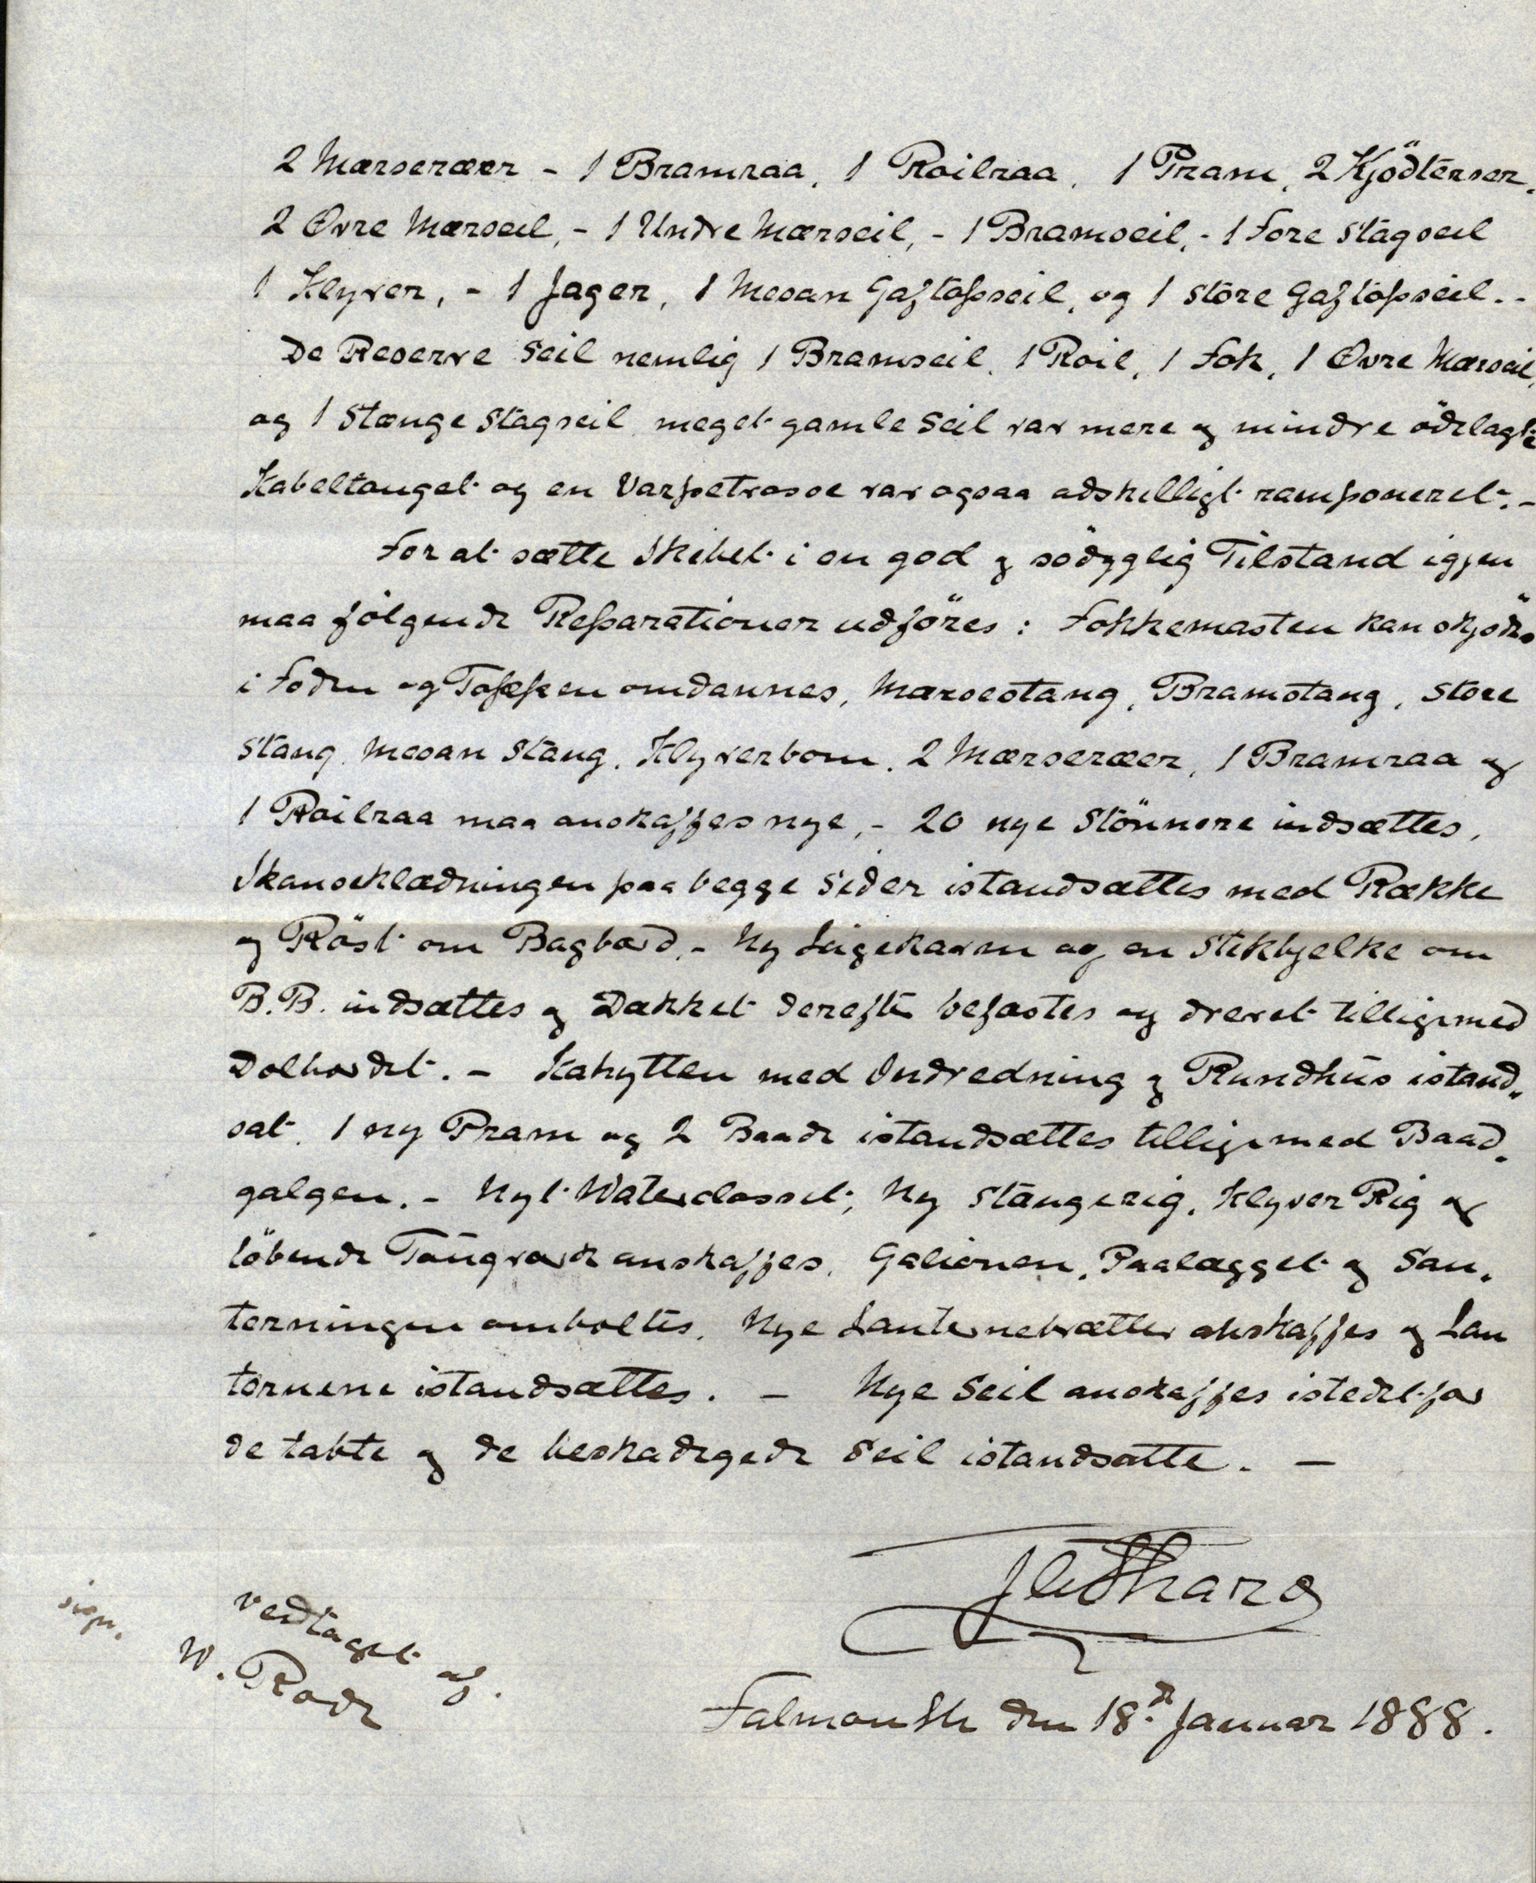 2 Mærseræer - 1 Bramraa, 1 Roilraa, 1 Pram, 2 Kjödterser,
2 Øvre Mærseil, - 1 Undre Mærseil, - 1 Bramseil, - 1 Fore Stagseil
1 Klyver, - 1 Jager, 1 Mesan Gaftopseil, og 1 Store Gaftopseil. -
De Reserve Seil nemlig 1 Bramseil, 1 Roil, 1 Fok, 1 Øvre Mærseil,
og 1 Stænge Stagseil meget gamle Seil var mere og mindre ödelagte
Kabeltouget og en Varpetrosse var ogsaa adskilligt ramponeret. -
For at sætte Skibet i en god og södygtig Tilstand igjen
maa følgende Reparationer udföres: Fokkemasten kan skjödes
i Foden og Toppen omdannes, Mærsestang, Bramstang, Store
Stang, Mesan Stang, Klyverbom, 2 Mærseræer, 1 Bramraa og
1 Roilraa maa anskaffes nye, - 20 nye Stönnere indsættes,
Skanseklædningen paa begge Sider istandsættes med Række
og Röst om Bagbord. - Ny Lugekarm og en Stikbjelke om
B.B. indsættes og Dækket derefter befæstes og drevet tilligemed
Dolbordet. - Kahytten med Indredning og Rundhus istand-
sat. 1 ny Pram og 2 Baade istandsættes tilligemed Baad-
galgen. - Nyt Watercloset, Ny Stangerig, Klyver Rig og
löbende Tougværk anskaffes. Galionen, Paalægget og
terningen omboltes. Nye Lanternebrætter anskaffes og Lan
ternene istandsættes. - Nye Seil anskaffes istedetfor
de tabte og de beskadigede Seil istandsatte. -
Falmouth den 18. Januar 1888.
vedtaget af.
sign. W. Rode